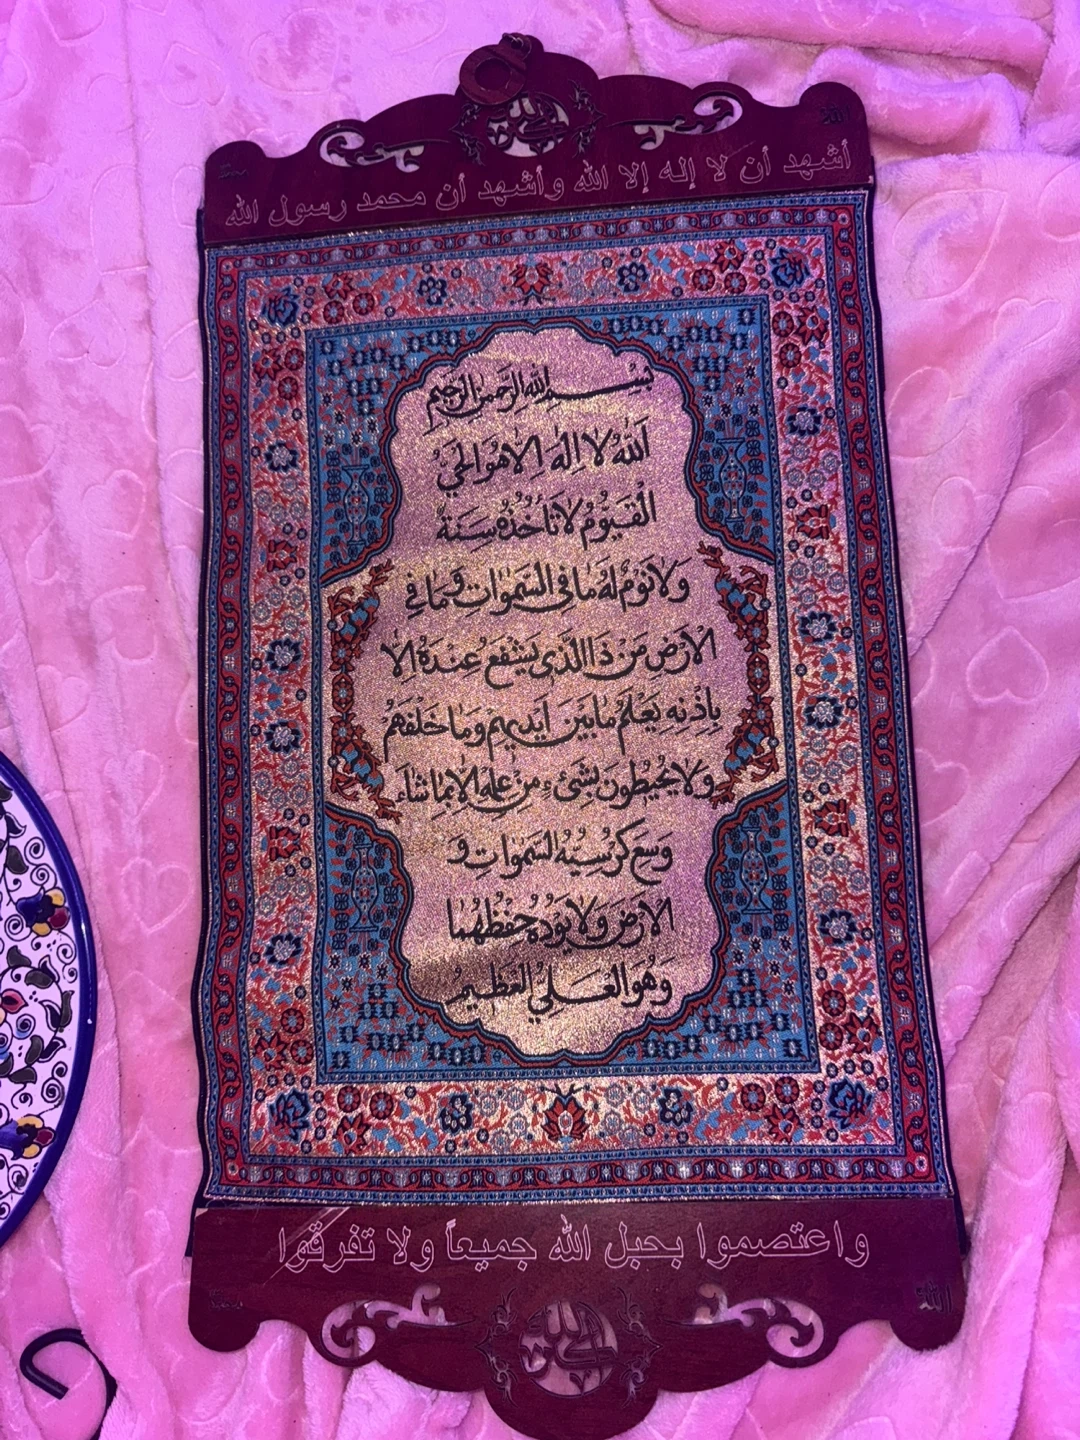 أشهد أن لا إله إلا الله وأشهد أن محمد رسول الله
بسم الله الرحمن الرحيم
الله لا اله الا هو الحي
القيوم لا تأخذه سنة
ولا نوم له ما في السموات وما في
الارض من ذا الذي يشفع عنده الا
باذنه يعلم ما بين ايديهم وما خلفهم
ولا يحيطون بشيء من علمه الا بما شاء
وسع كرسيه السموات و
الارض ولا يؤده حفظهما
وهو العلي العظيم
واعتصموا بحبل الله جميعاً ولا تفرقوا
الله